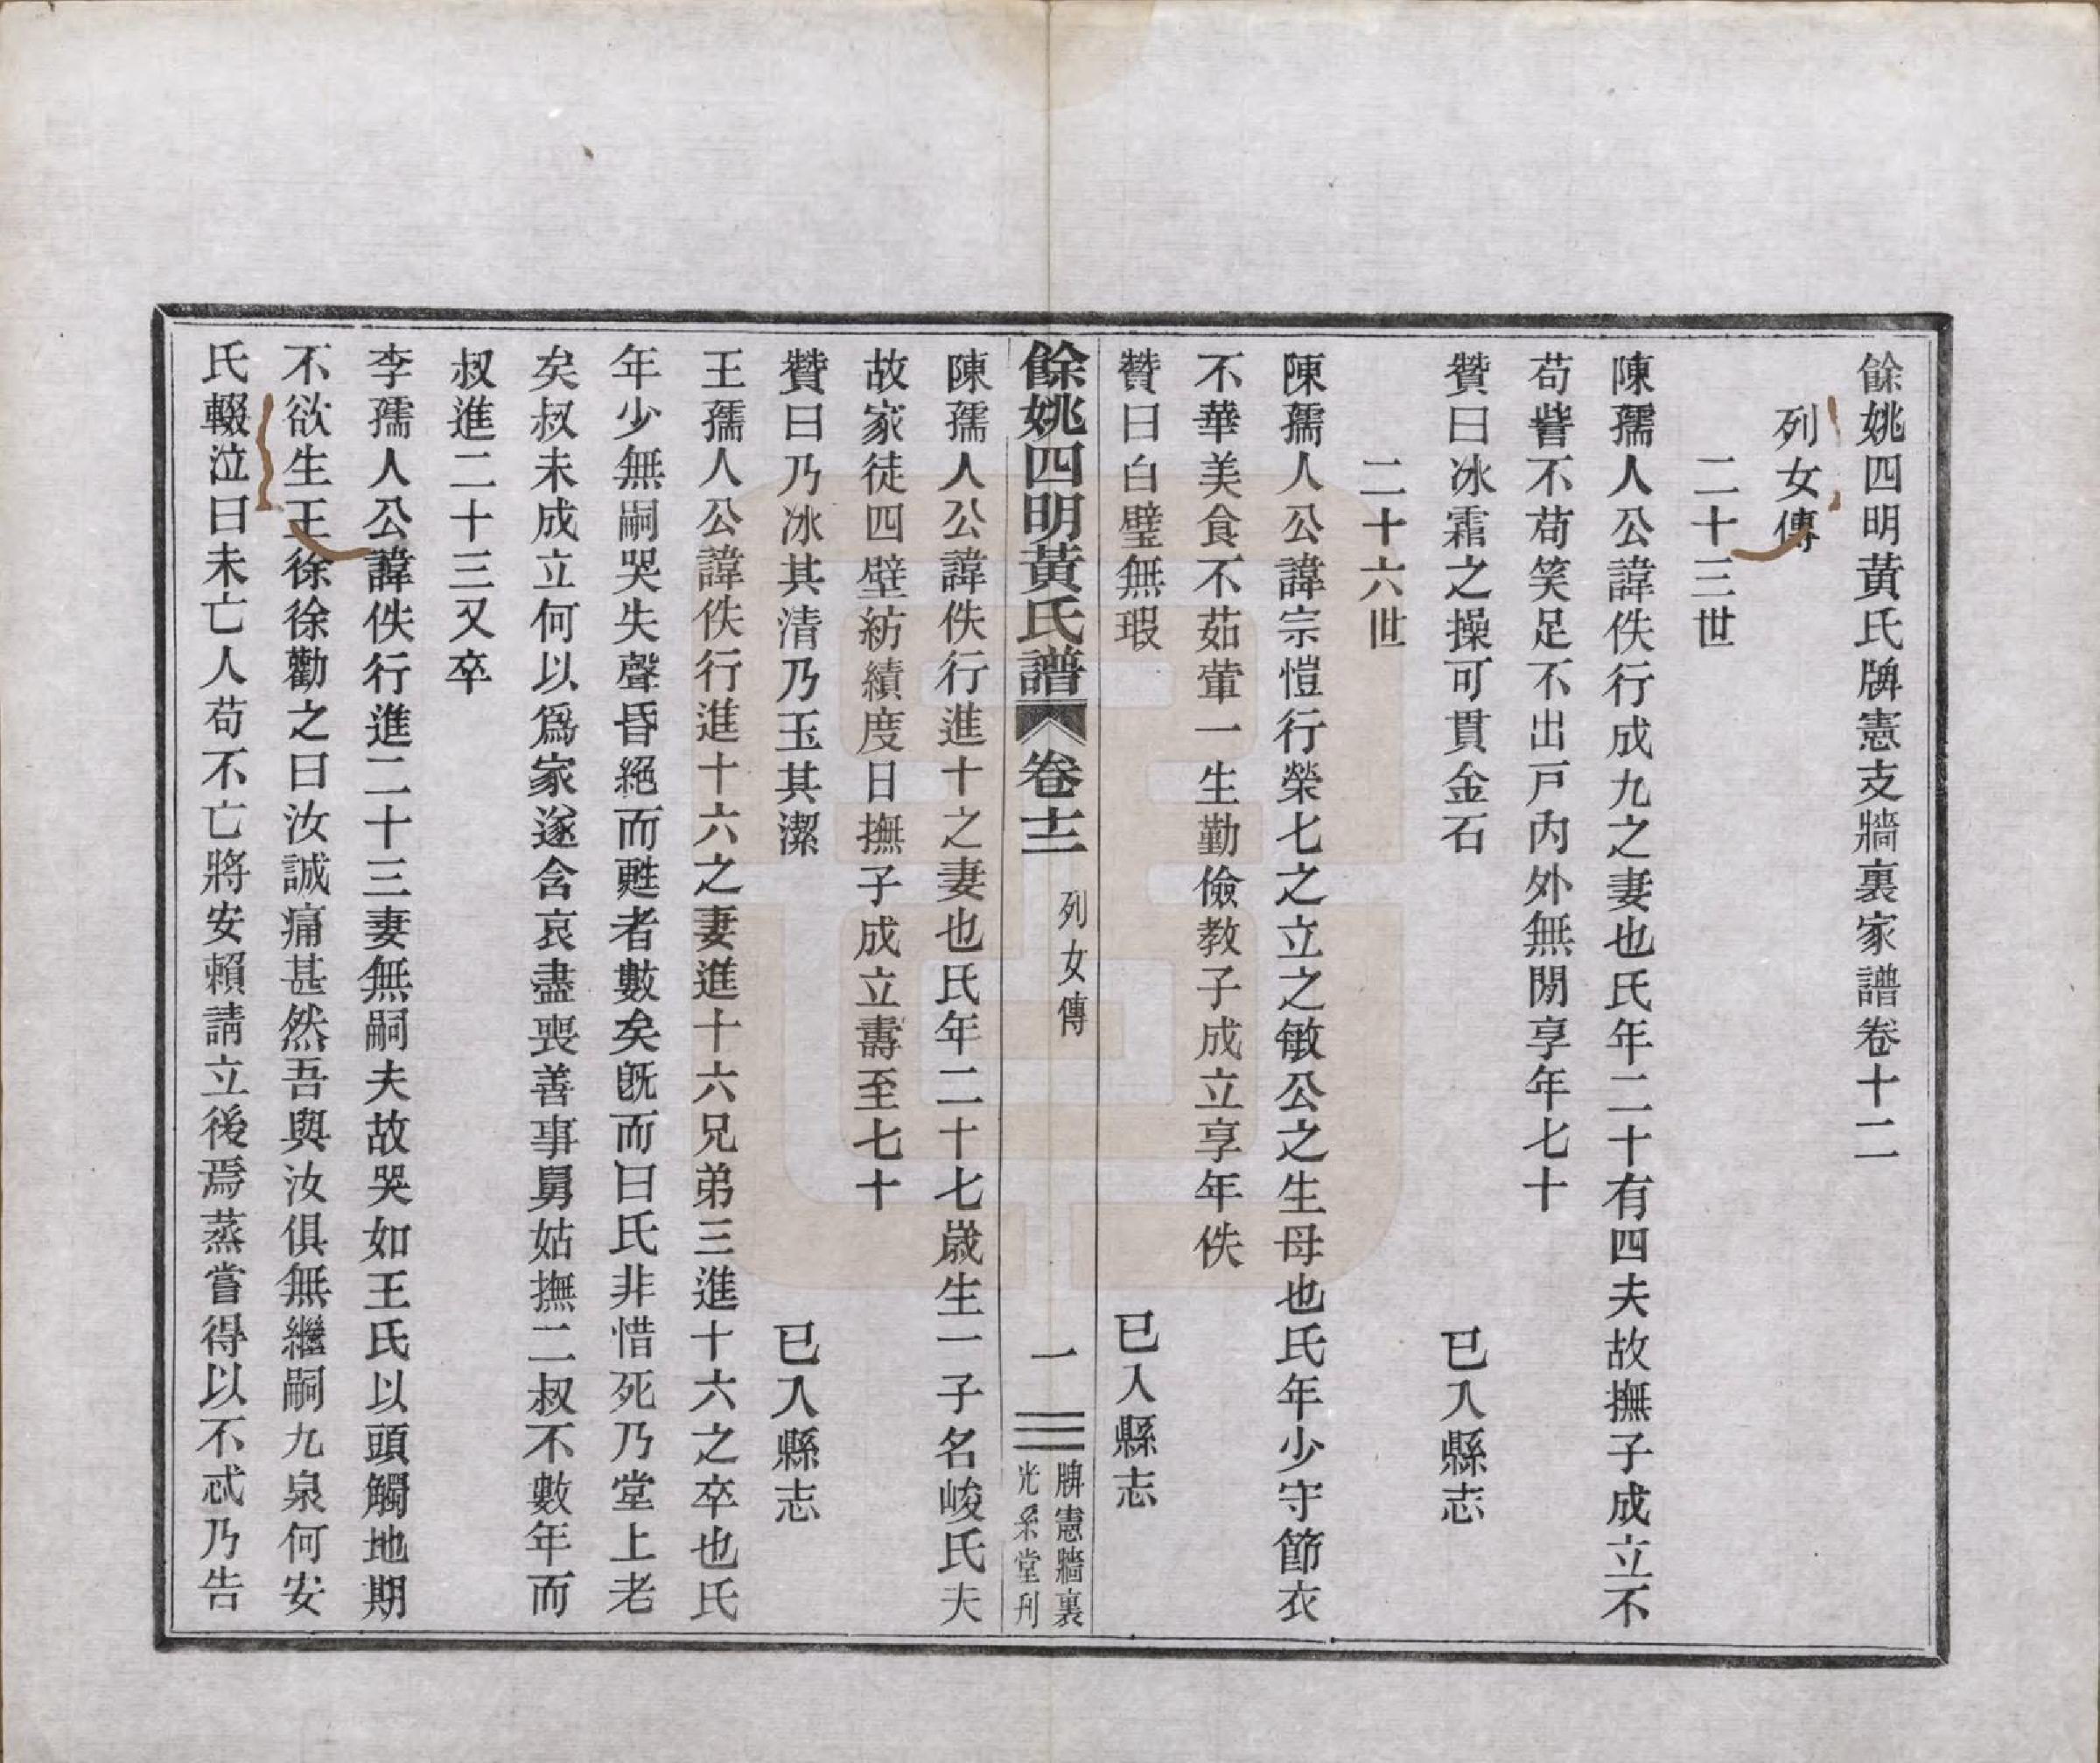 餘姚四明黃氏牌憲支牆裏家譜卷十二
列女傳
二十三世
陳孺人公諱佚行成九之妻也氏年二十有四夫故撫子成立不
苟訾不苟笑足不出戸內外無閒享年七十
贊曰冰霜之操可貫金石 已入縣志
二十六世
陳孺人公諱宗愷行榮七之立之敏公之生母也氏年少守節衣
不華美食不茹葷一生勤儉教子成立享年佚
贊曰白璧無瑕 已入縣志
餘姚四明黃氏譜 卷十二 列女傳 一 牌憲牆裏 光采堂刋
陳孺人公諱佚行進十之妻也氏年二十七歲生一子名峻氏夫
故家徒四壁紡績度日撫子成立壽至七十
贊曰乃冰其清乃玉其潔 已入縣志
王孺人公諱佚行進十六之妻進十六兄弟三進十六之卒也氏
年少無嗣哭失聲昏絕而甦者數矣既而曰氏非惜死乃堂上老
矣叔未成立何以爲家遂含哀盡喪善事舅姑撫二叔不數年而
叔進二十三又卒
李孺人公諱佚行進二十三妻無嗣夫故哭如王氏以頭觸地期
不欲生王徐徐勸之曰汝誠痛甚然吾與汝俱無繼嗣九泉何安
氏輟泣曰未亡人苟不亡將安賴請立後焉蒸嘗得以不忒乃告